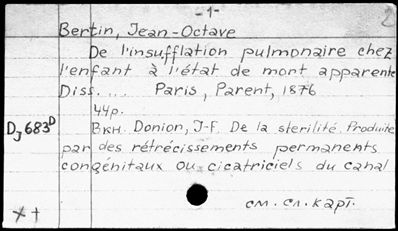 -1-
2
Bertin, Jean-Octave
De l'insufflation pulmonaire chez
l'enfant à l'état de mort apparente
Diss. ... Paris, Parent, 1876
44p.
Dj 683D Вкн. Donion, J-F. De la sterilité. Produite
par des rétrécissements permanents
congénitaux ou cicatriciels du canal
см. сл. карт.